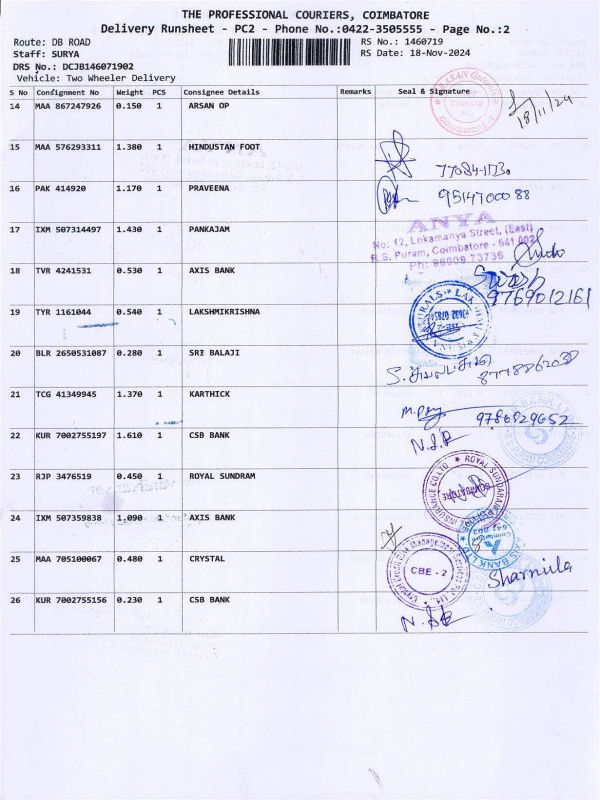 THE PROFESSIONAL COURIERS, COIMBATORE
Delivery Runsheet - PC2 - Phone No.:0422-3505555 - Page No.:2
Route: DB ROAD RS No.: 1460719
Staff: SURYA RS Date: 18-Nov-2024
DRS No.: DCJB146071902
Vehicle: Two Wheeler Delivery
S No Consignment No Weight PCS Consignee Details Remarks Seal & Signature
14 MAA 867247926 0.150 1 ARSAN OP
18/11/24
15 MAA 576293311 1.380 1 HINDUSTAN FOOT
16 PAK 414920 1.170 1 PRAVEENA 95147000 88
17 IXM 507314497 1.430 1 PANKAJAM
ANYA
No: 12, Lokamanya Street, (East)
R.S. Puram, Coimbatore - 641 002
Ph: 96009 73736
18 TVR 4241531 0.530 1 AXIS BANK
9769012161
19 TYR 1161044 0.540 1 LAKSHMIKRISHNA
20 BLR 2650531087 0.280 1 SRI BALAJI
21 TCG 41349945 1.370 1 KARTHICK
9786829652
22 KUR 7002755197 1.610 1 CSB BANK
23 RJP 3476519 0.450 1 ROYAL SUNDRAM
ROYAL SUNDARAM
INSURANCE CO LTD
COIMBATORE
24 IXM 507359838 1.090 1 AXIS BANK
25 MAA 705100067 0.480 1 CRYSTAL
CBE - 2
Sharmila
26 KUR 7002755156 0.230 1 CSB BANK